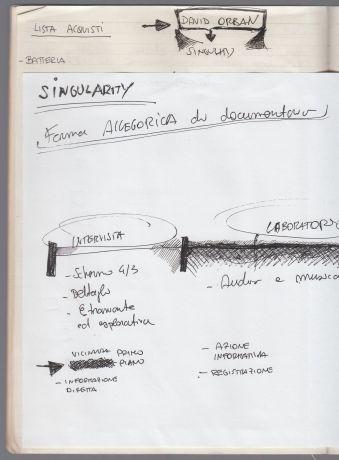 LISTA ACQUISTI
DAVID ORBAN
SINGULARITY
- BATTERIA
SINGULARITY
Forma ALLEGORICA di documentario
INTERVISTA
LABORATORIO
- Schermo 4/3
- Dettaglio
- Estraniante
ed esplorativa
VICINANZA PRIMO
PIANO
- INFORMAZIONE
DIRETTA
- Audio e musica
- AZIONE
INFORMATIVA
- REGISTRAZIONE